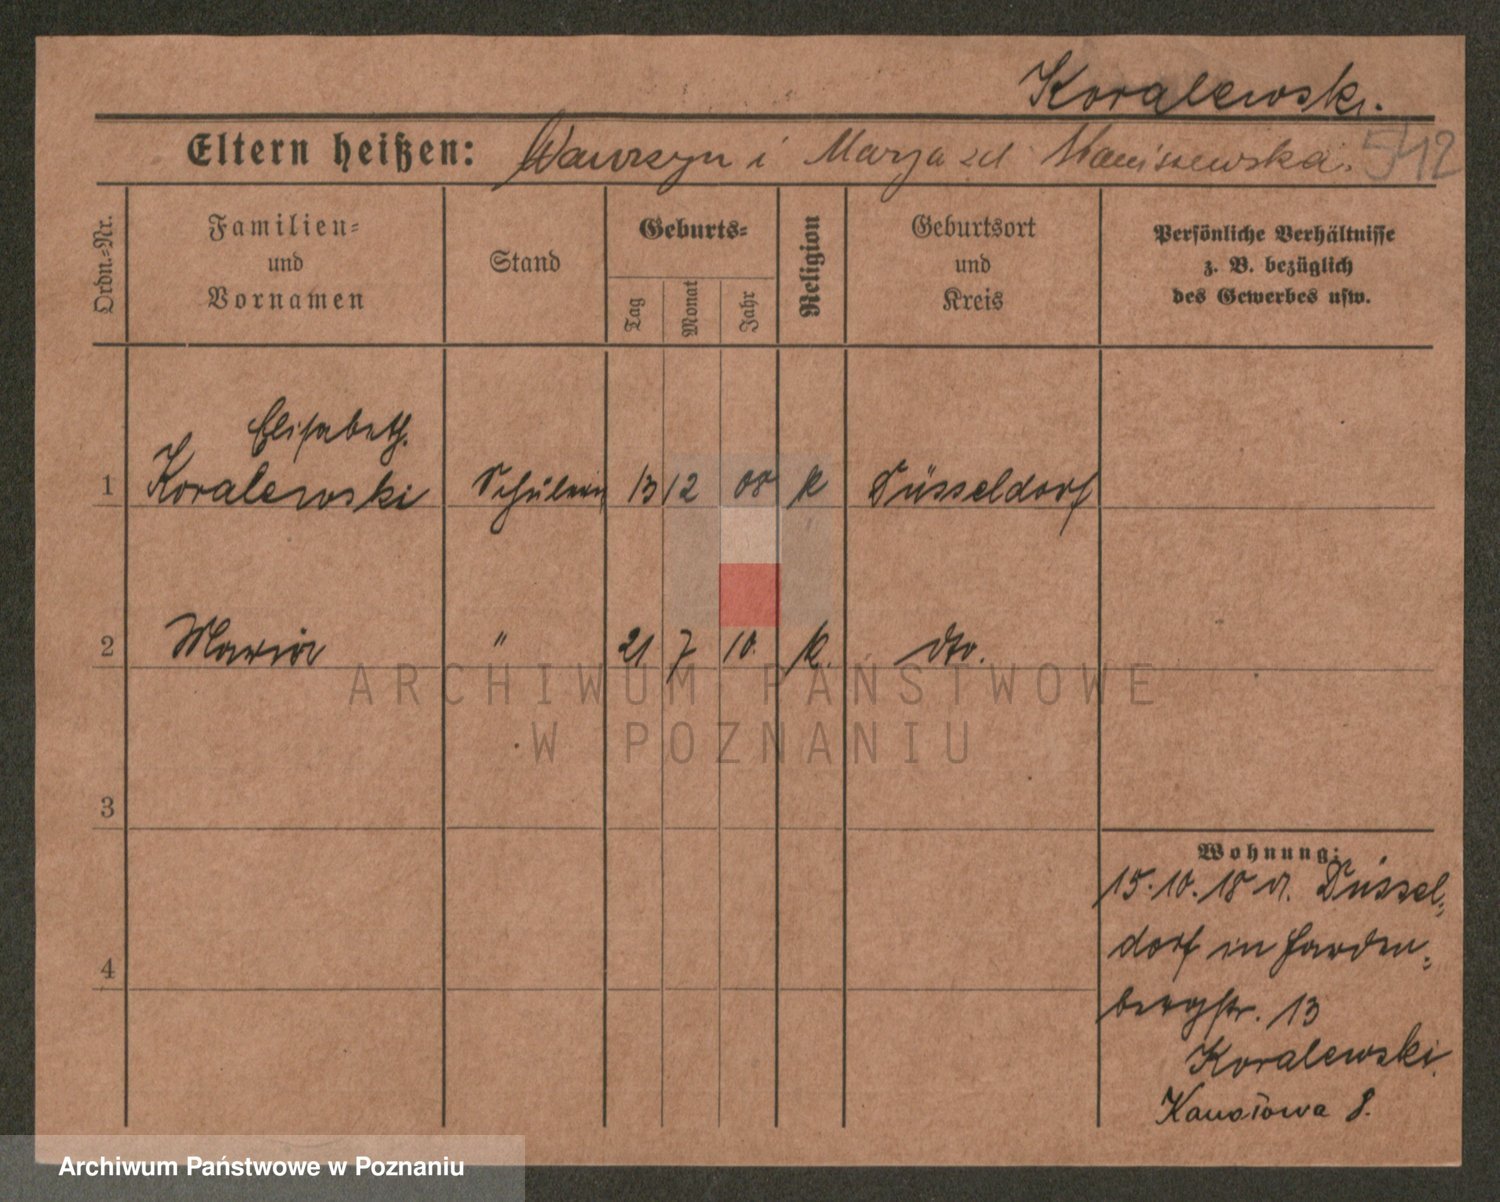 Koralewski.
Eltern heißen: Wawrzyn i Marya zd Staniszewska. 542
Ordn.=Nr.
Familien=
und
Vornamen
Stand
Geburts=
Tag
Monat
Jahr
Religion
Geburtsort
und
Kreis
Persönliche Verhältnisse
z. B. bezüglich
des Gewerbes usw.
Elisabeth.
1 Koralewski Schülerin 13 12 08 k Düsseldorf
2 Maria " 21 7 10. k. dto.
ARCHIWUM PAŃSTWOWE
W POZNANIU
3
4
Wohnung:
15.10.18 v. Düssel=
dorf in Harden=
bergstr. 13
Koralewski.
Kanałowa 8.
Archiwum Państwowe w Poznaniu